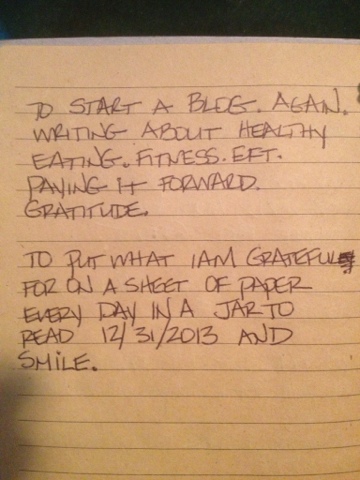 TO START A BLOG. AGAIN.
WRITING ABOUT HEALTHY
EATING. FITNESS. EFT.
PAYING IT FORWARD.
GRATITUDE.
TO PUT WHAT I AM GRATEFUL
FOR ON A SHEET OF PAPER
EVERY DAY IN A JAR TO
READ 12/31/2013 AND
SMILE.